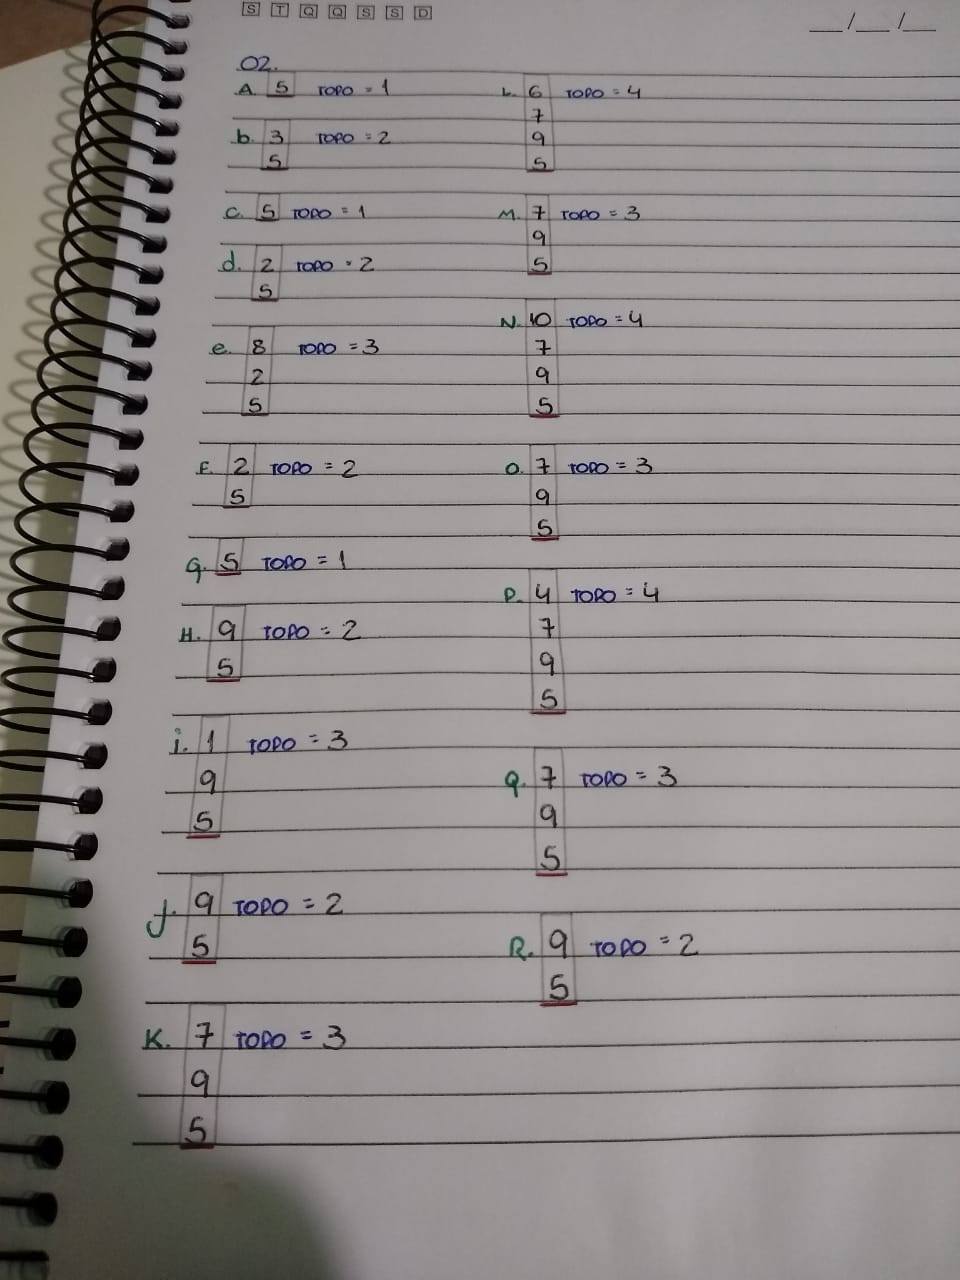 S T Q Q S S D
__/__/__
02.
A. 5 TOPO = 1
b. 3 TOPO = 2
5
C. 5 TOPO = 1
d. 2 TOPO = 2
5
e. 8 TOPO = 3
2
5
F. 2 TOPO = 2
5
g. 5 TOPO = 1
H. 9 TOPO = 2
5
i. 1 TOPO = 3
9
5
J. 9 TOPO = 2
5
K. 7 TOPO = 3
9
5
L. 6 TOPO = 4
7
9
5
M. 7 TOPO = 3
9
5
N. 10 TOPO = 4
7
9
5
O. 7 TOPO = 3
9
5
P. 4 TOPO = 4
7
9
5
Q. 7 TOPO = 3
9
5
R. 9 TOPO = 2
5